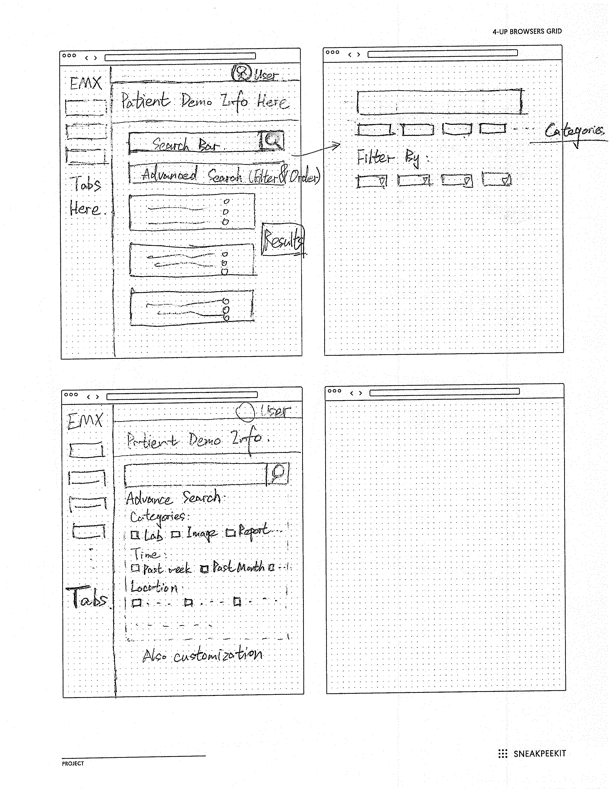 4-UP BROWSERS GRID
EMX
User
Patient Demo Info Here
Search Bar.
Advanced Search (Filter & Order)
Tabs
Here.
Results
Categories
Filter By:
EMX
User
Patient Demo Info.
Advance Search:
Categories:
Lab Image Report...
Time:
Past week Past Month ...
Location
Tabs
Also customization
PROJECT
SNEAKPEEKIT